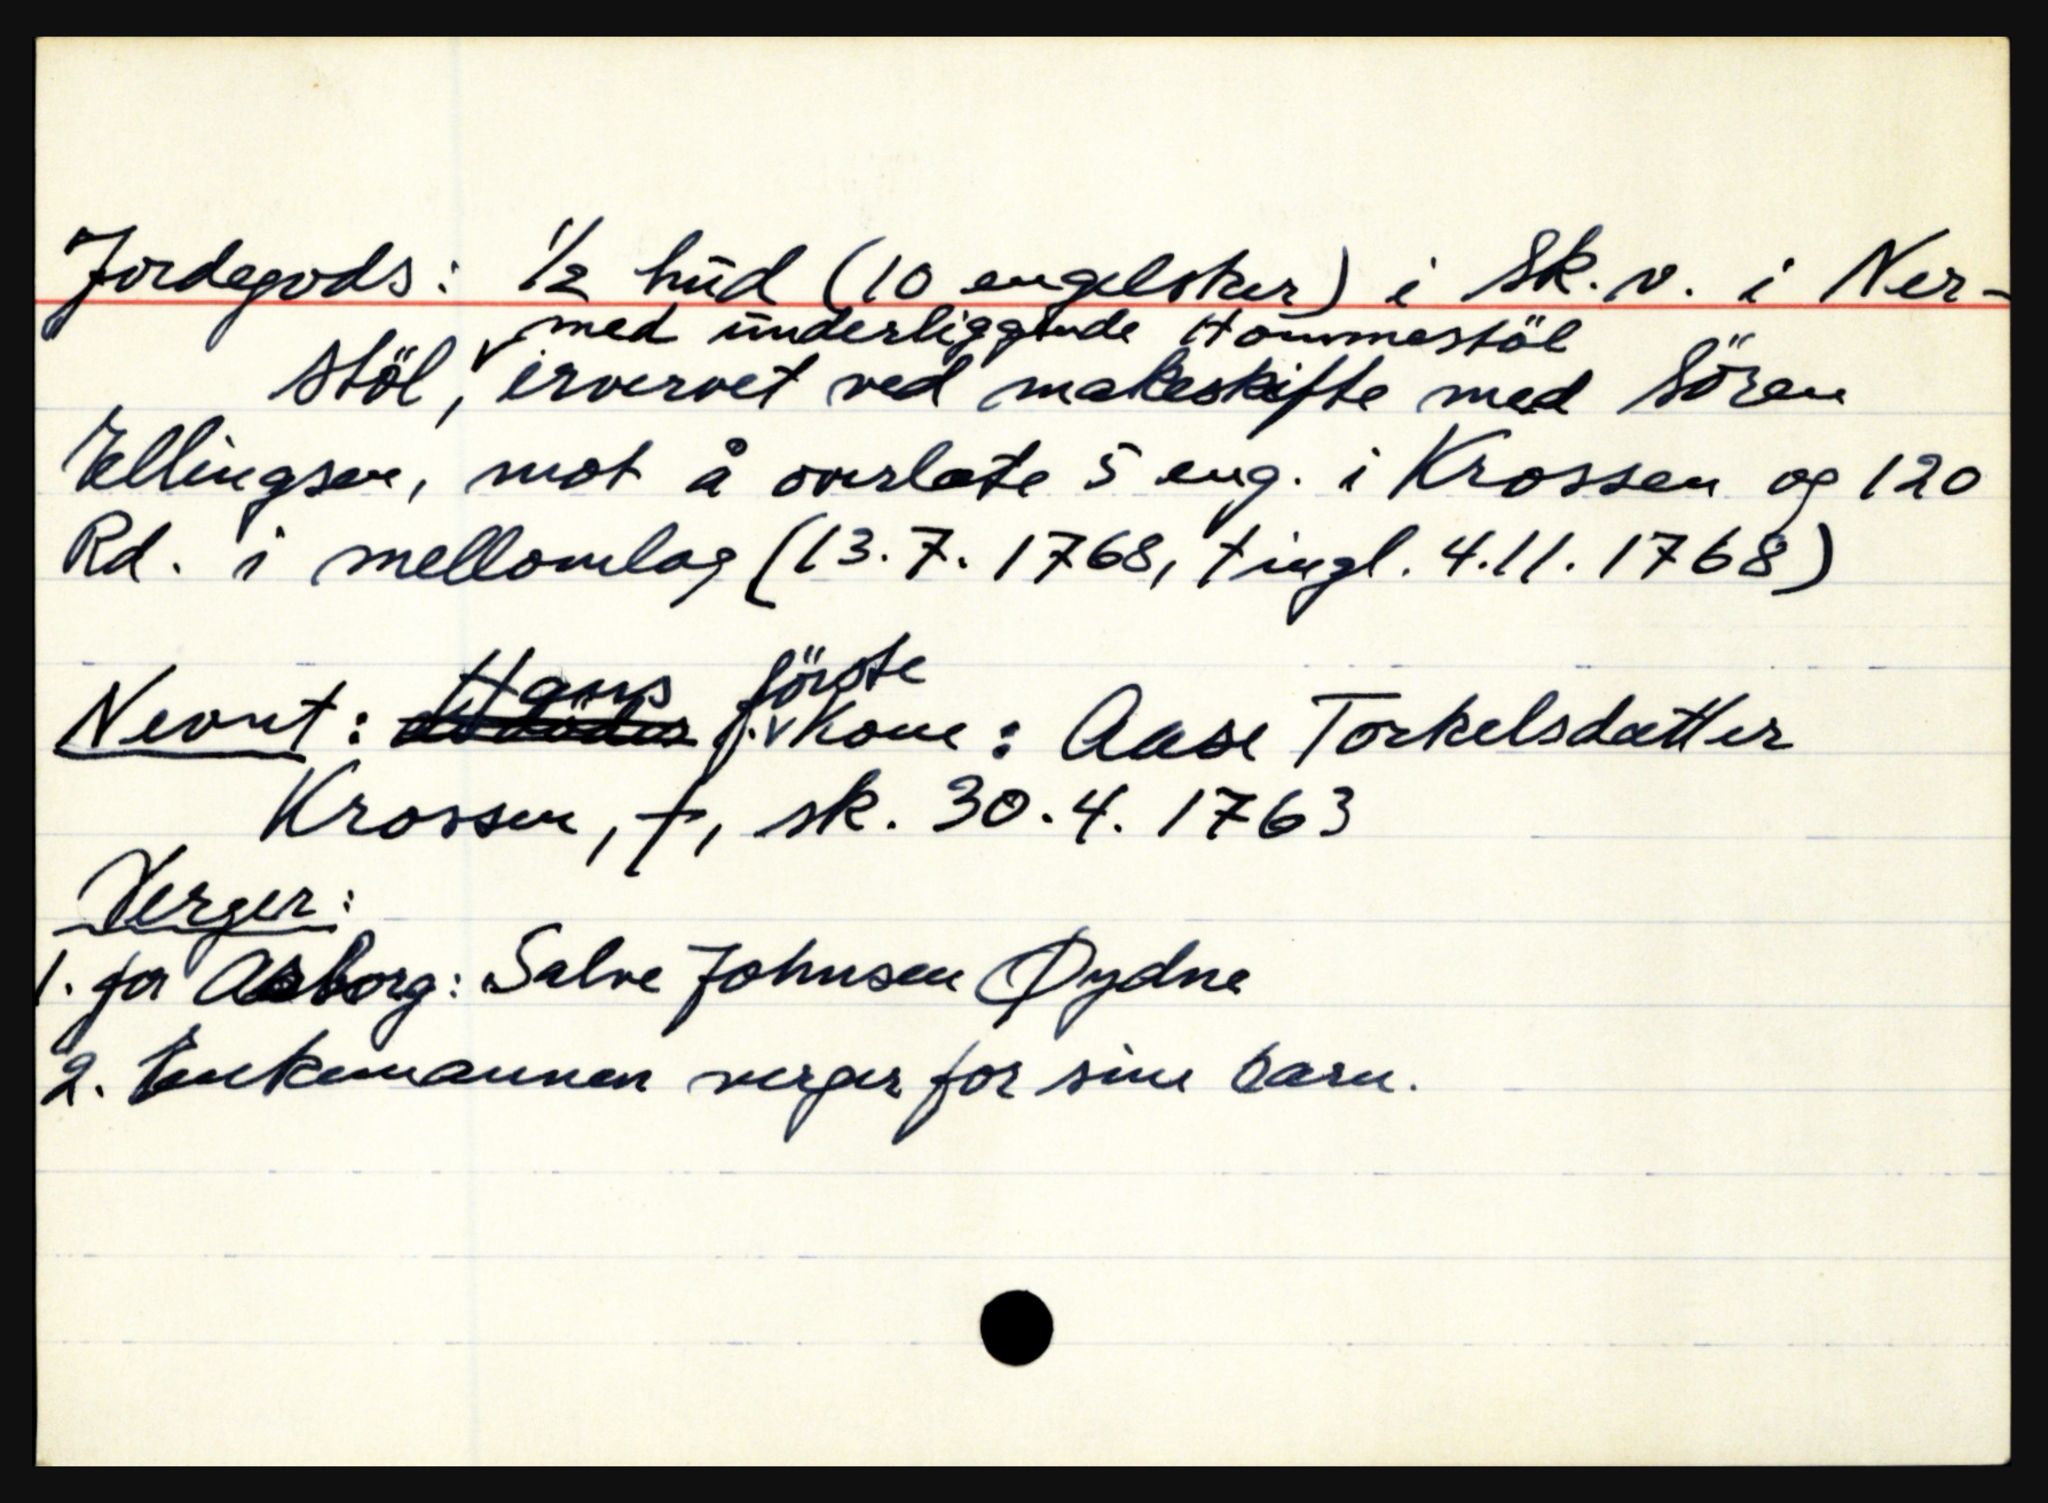 Jordegods: 1/2 hud (10 engelsker) i Sk.v. i Ner-
med underliggende Hommestöl
stöl, ervervet ved makeskifte med Sören
Ellingsen, mot å overlate 5 eng. i Krossen og 120
Rd. i mellomlag (13.7.1768, tingl. 4.11.1768)
Hans förste
Nevnt: f. kone: Aase Torkelsdatter
Krossen, †, sk. 30.4.1763
Verger:
1. for Asborg: Salve Johnsen Øydne
2. Enkemannen verger for sine barn.